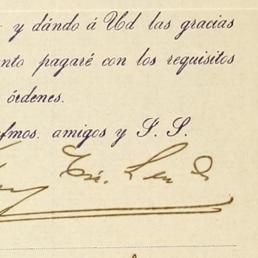 y dándo á Ud las gracias
ento pagaré con los requisitos
órdenes.
afmos. amigos y S. S.